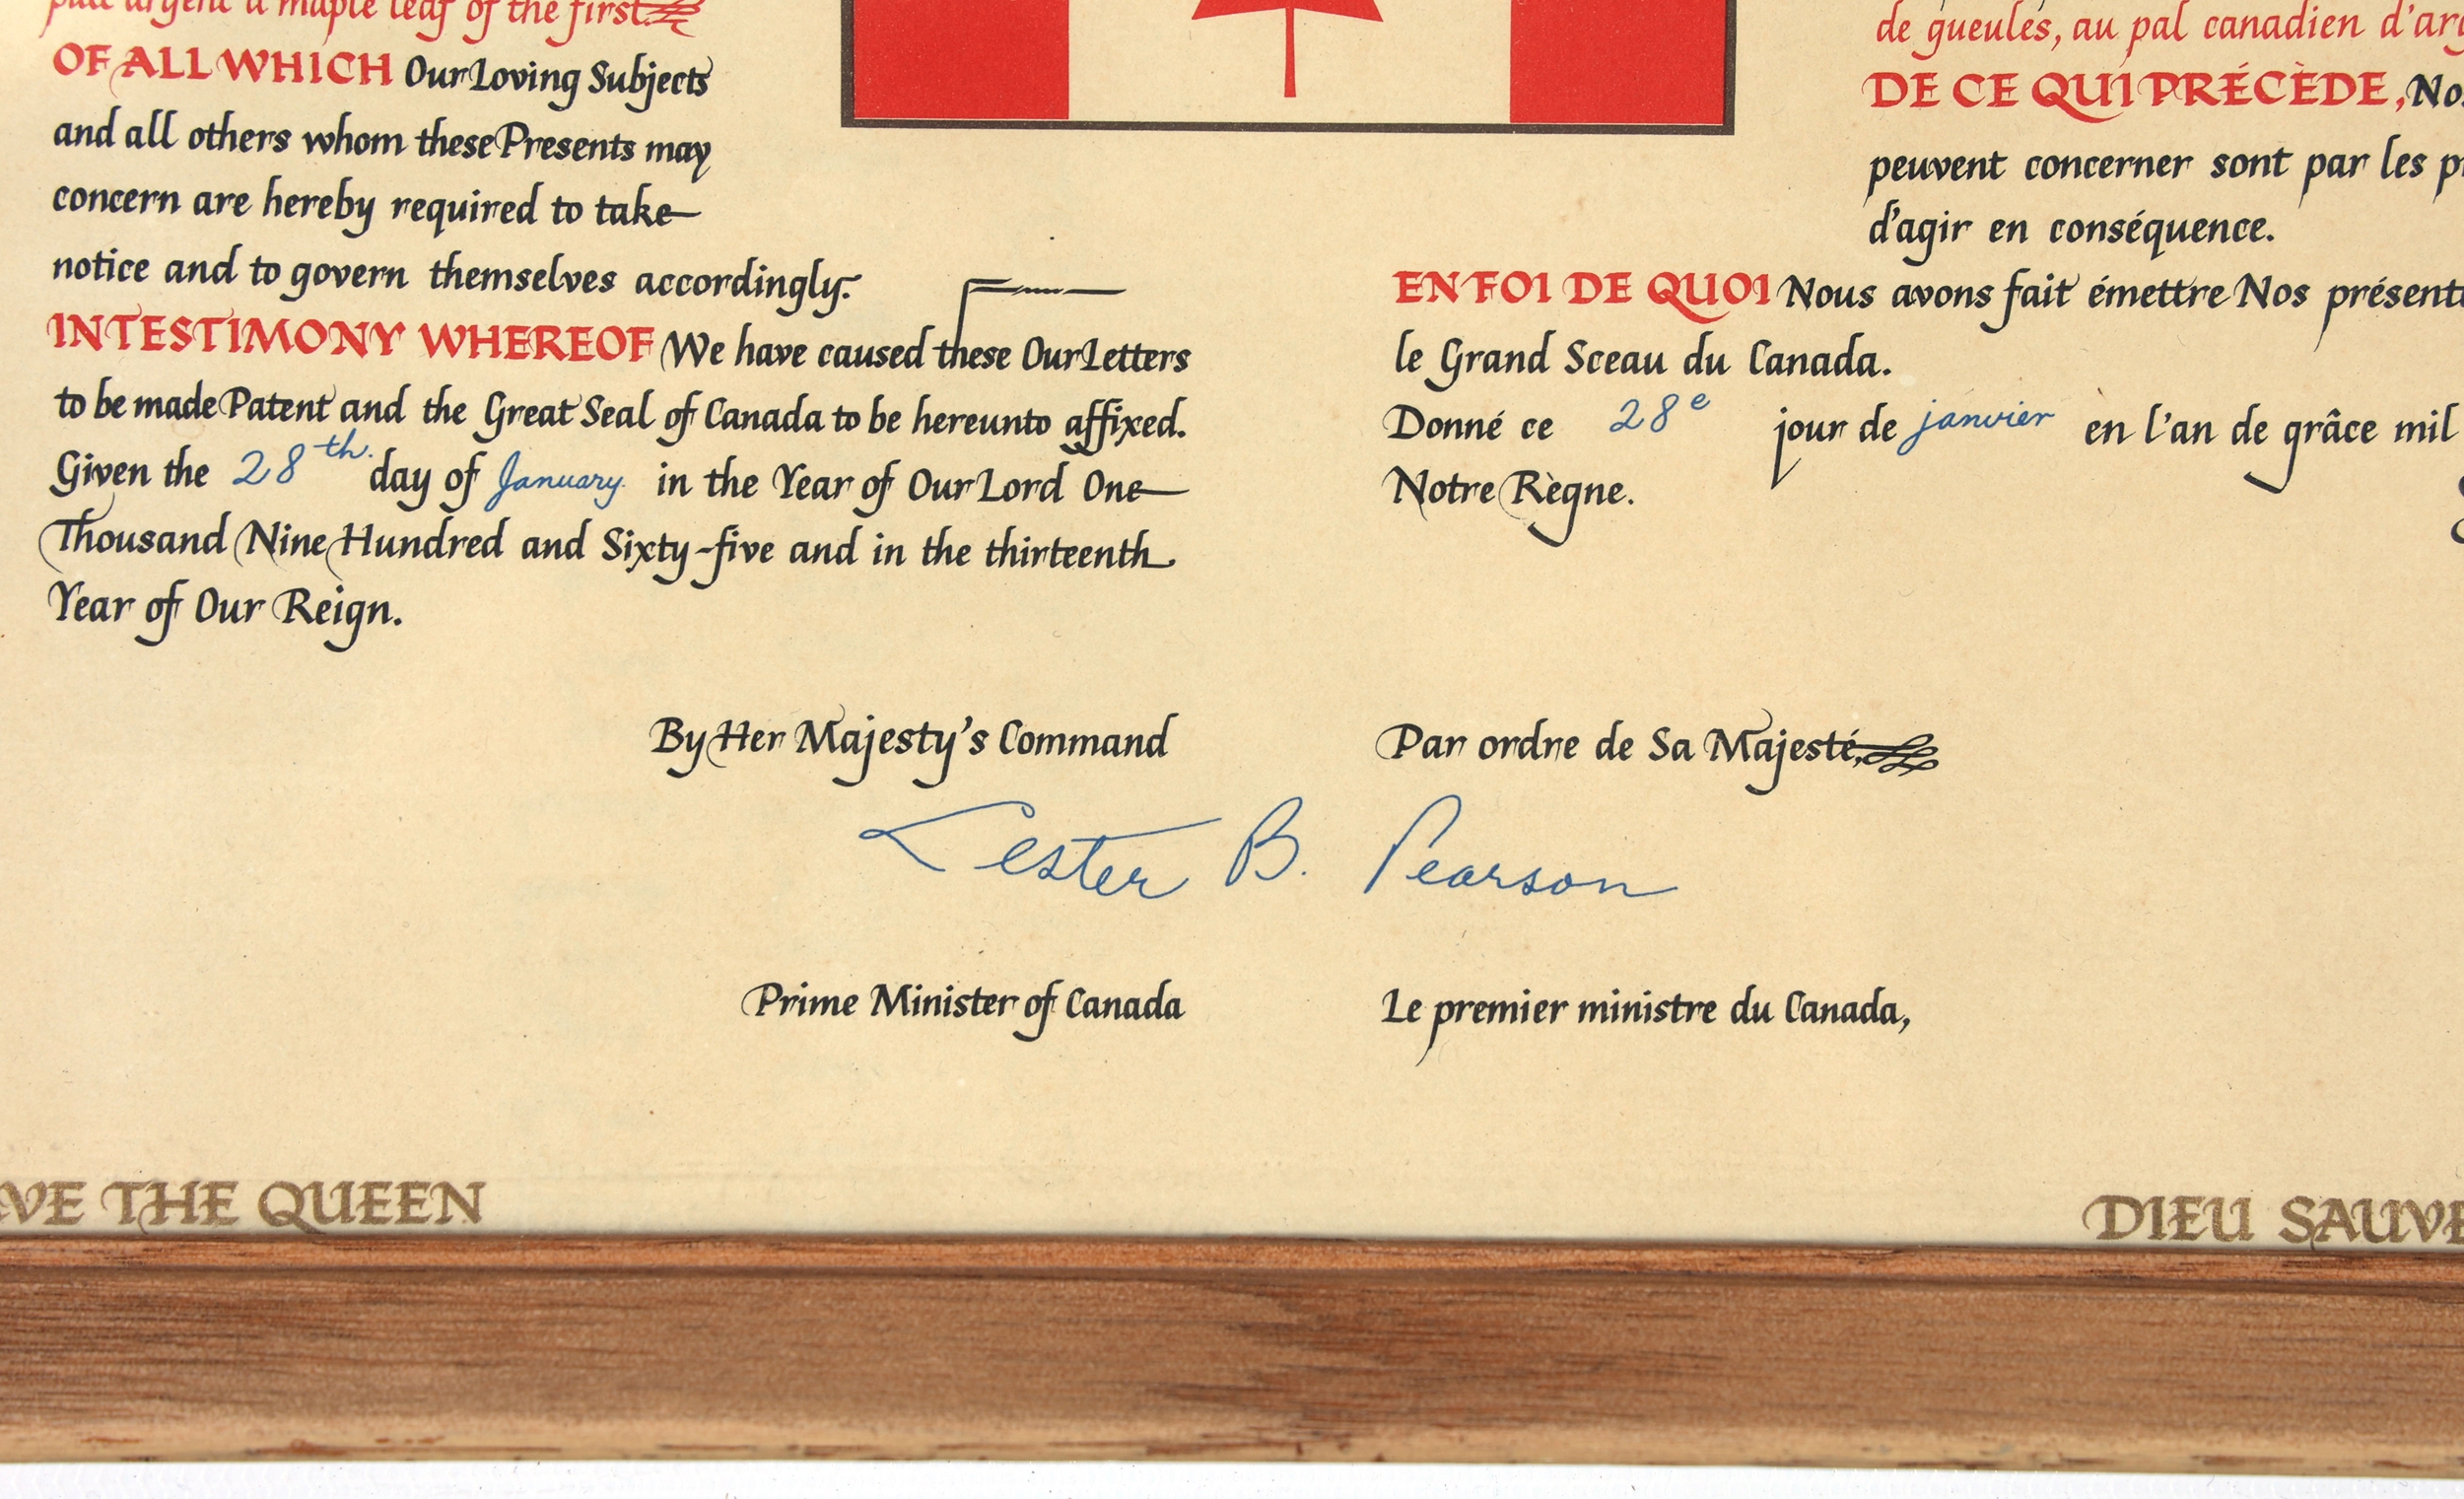 pale argent a maple leaf of the first
OF ALL WHICH Our Loving Subjects
and all others whom these Presents may
concern are hereby required to take
notice and to govern themselves accordingly.
IN TESTIMONY WHEREOF We have caused these Our Letters
to be made Patent and the Great Seal of Canada to be hereunto affixed.
Given the 28th day of January in the Year of Our Lord One
Thousand Nine Hundred and Sixty-five and in the thirteenth
Year of Our Reign.
By Her Majesty's Command
de gueules, au pal canadien d'arg
DE CE QUI PRÉCÈDE, No
peuvent concerner sont par les p
d'agir en conséquence.
EN FOI DE QUOI Nous avons fait émettre Nos présent
le Grand Sceau du Canada.
Donné ce 28e jour de janvier en l'an de grâce mil
Notre Règne.
Par ordre de Sa Majesté,
Lester B. Pearson
Prime Minister of Canada
Le premier ministre du Canada,
VE THE QUEEN
DIEU SAUVE